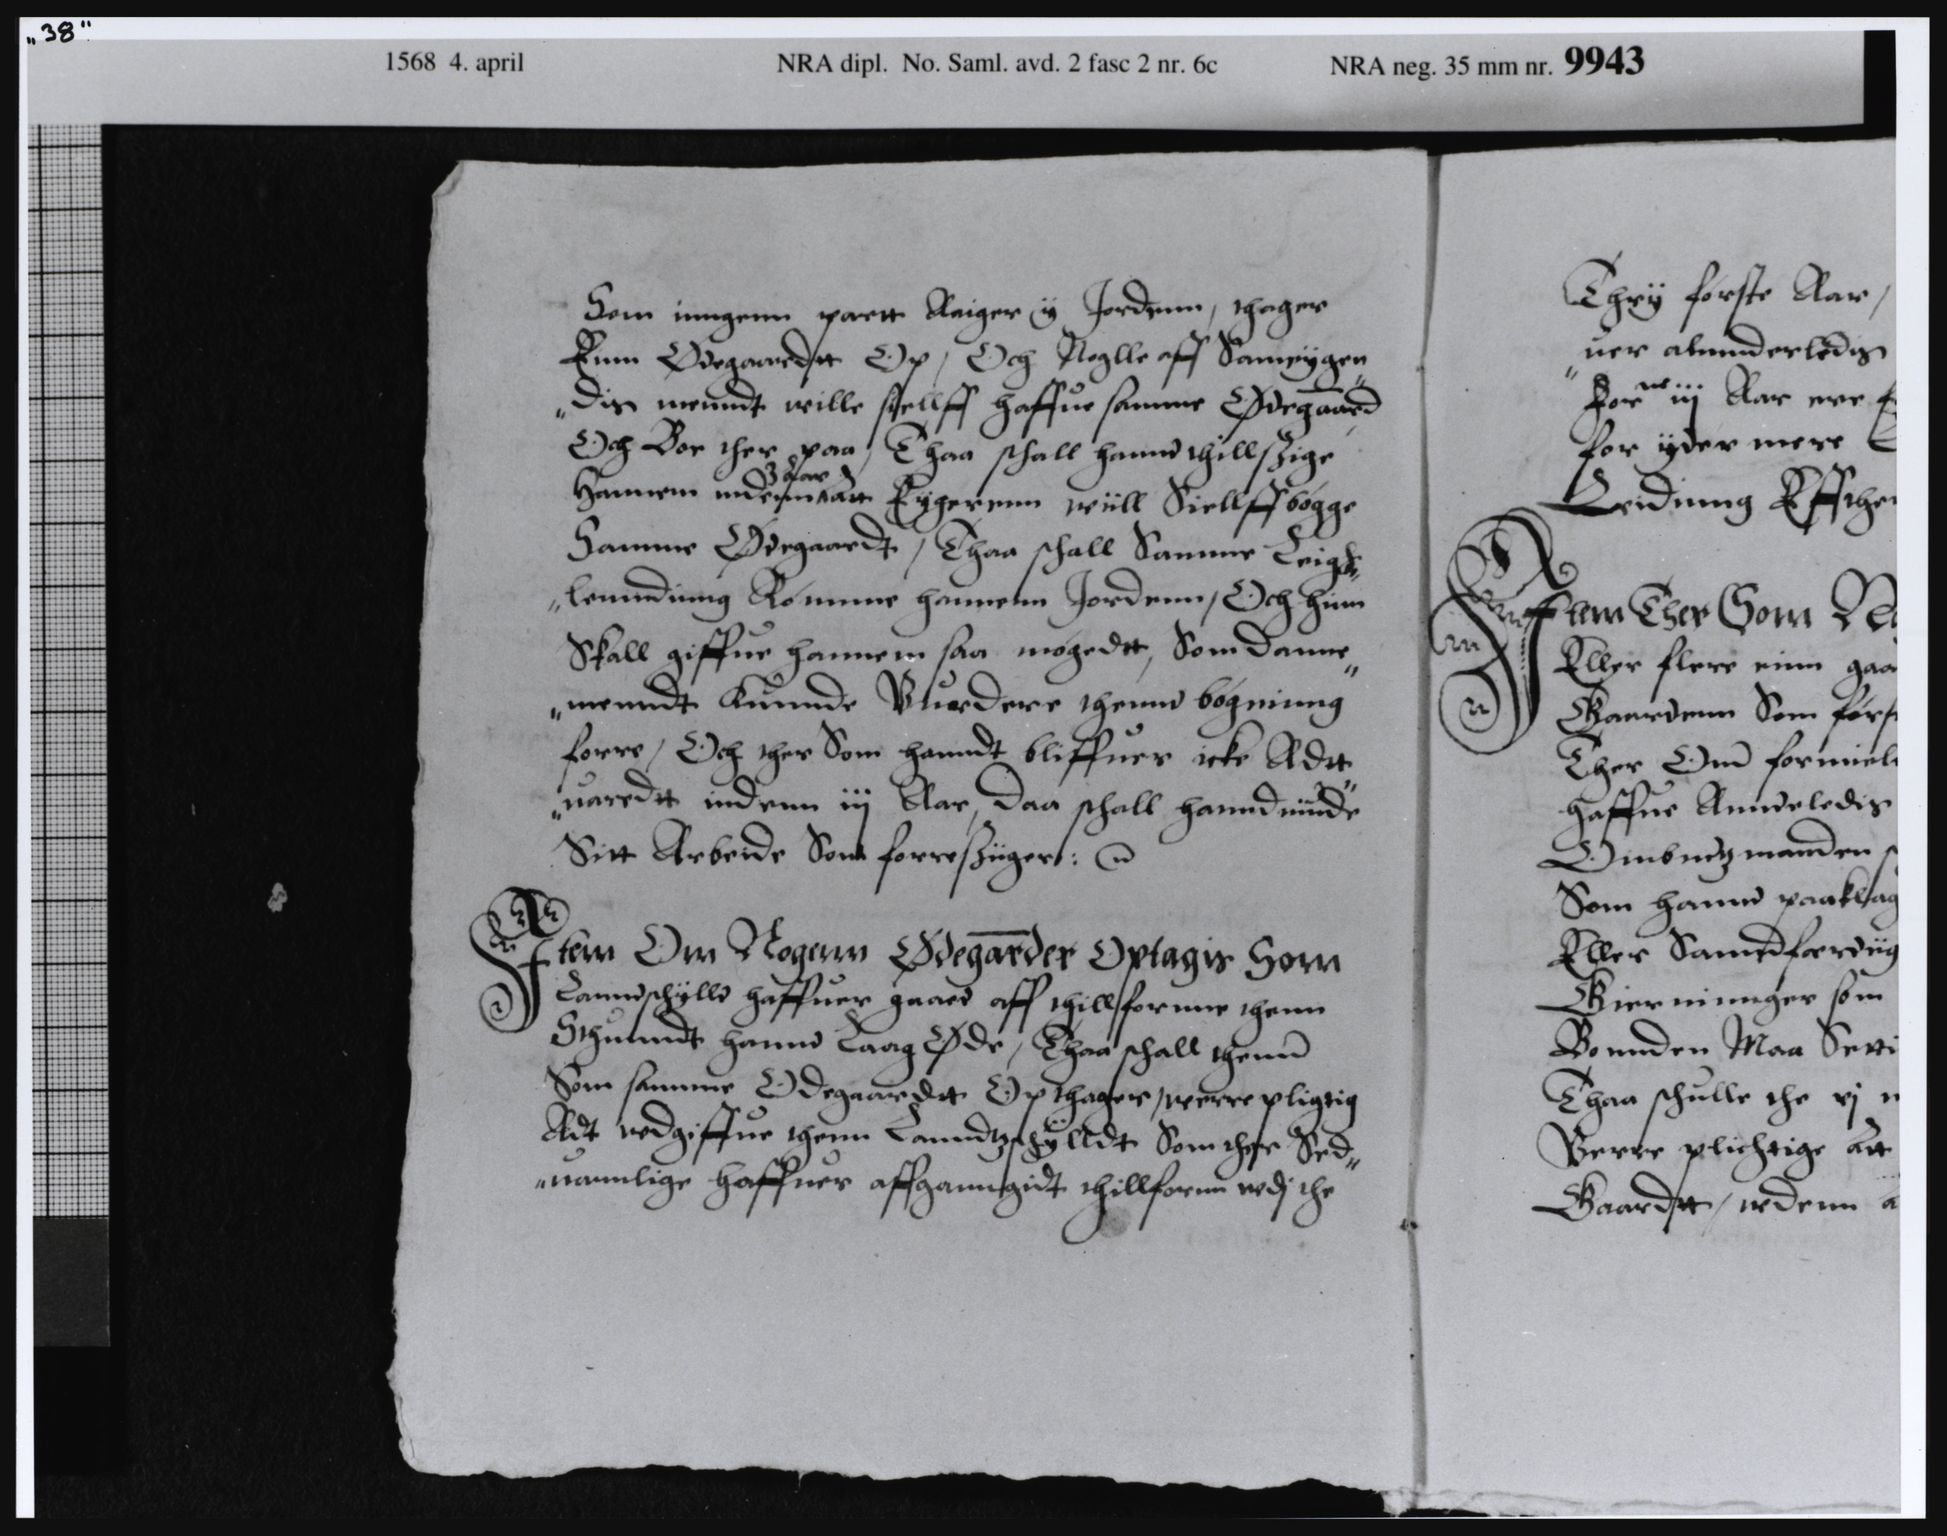 "38"
1568 4. april NRA dipl. No. Saml. avd. 2 fasc 2 nr. 6c NRA neg. 35 mm nr. 9943
Som inngenn partt Aaiger ÿ Jordenn, thager
Enn Ødegaardtt Op, Och Noglle aff Sameÿgen
dis menndt wille siellff haffue samme Ødegaard
Och Boe ther paa, Thaa schall hannd thillßige
Hannem indenn Aar att Eÿgerenn wiill Siellff bógge
Samme Ødegaardt, Thaa schall Samme Leigh
lenndinng Rómme hannenn Jordenn, Och hinn
Skall giffue hannem saa mógedtt, Som danne
menndt kunnde Vurdere thennd bógninng
forre, Och ther Som hanndt bliffuer icke Adtt
uaredtt indenn iij Aar, daa schall hannd niude
Sitt Arbeide Som forreßiiger:
Jtem Om Nogenn Ødegarder Optagis Som
Lanndschÿlld haffuer gaaed aff thillfornne thenn
Sthunndt hannd Laag Øde, Thaa schall thennd
Som samme Ødegaardtt Opthager, werre pligtig
Adt wdgiffue thenn Lanndtzschÿlldt Som ther Sed
uannlige haffuer affganngidt thillfornn wdj the
Thrÿ fórste Aar,
uer alunderledis
For ne iij Aar ere
for ÿder mere
Leidinng Effther
Jtem Ther Som
Eller flere einn gaar
Gaardenn Som fórst
Ther Om formiel
haffue Annderledis
Ombudtzmanden
Som hannd paaklag
Eller Sanndferdiig
Gierninnger som
Bonnden Maa Setti
Thaa schulle the vj
Verre plichtige att
Gaardtt, wdenn a